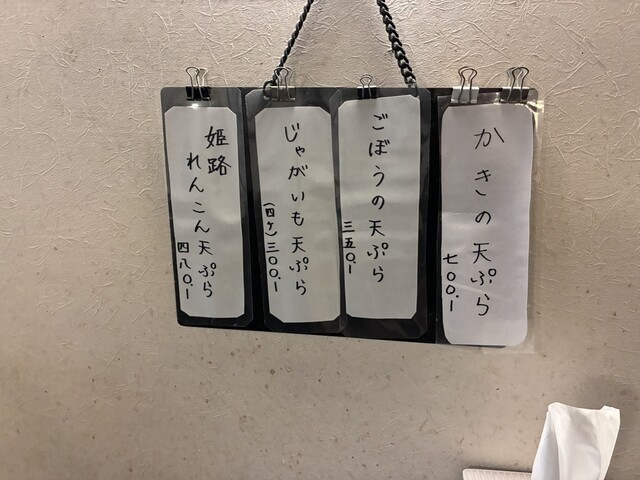 かきの天ぷら
七〇〇.ー
ごぼうの天ぷら
三五〇.ー
じゃがいも天ぷら
(四ケ)三〇〇.ー
姫路
れんこん天ぷら
四八〇.ー